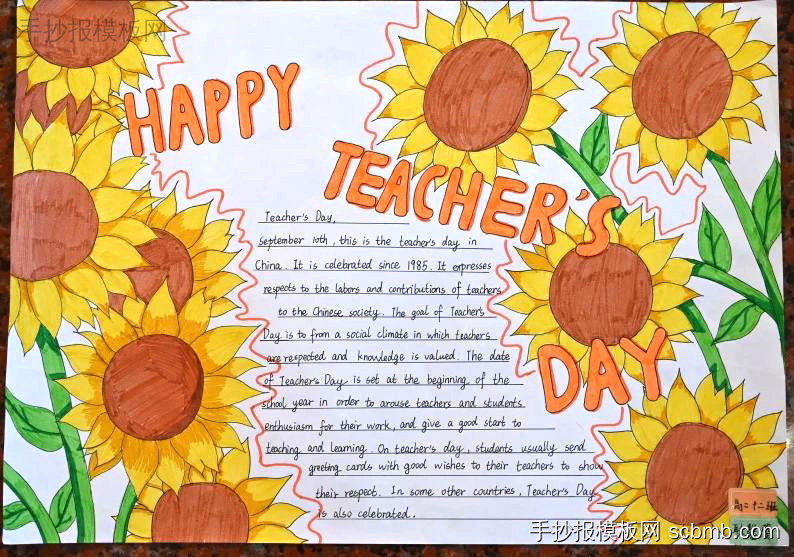 手抄报模板网
HAPPY
TEACHER'S
DAY
Teacher's Day,
September 10th, this is the teacher's day in
China. It is celebrated since 1985. It expresses
respects to the labors and contributions of teachers
to the Chinese society. The goal of Teachers
Day is to from a social climate in which teachers
are respected and knowledge is valued. The date
of Teacher's Day is set at the beginning of the
school year in order to arouse teachers and students
enthusiasm for their work, and give a good start to
teaching and learning. On teacher's day, students usually send
greeting cards with good wishes to their teachers to show
their respect. In some other countries, Teacher's Day
is also celebrated.
高二十二班
手抄报模板网 scbmb.com